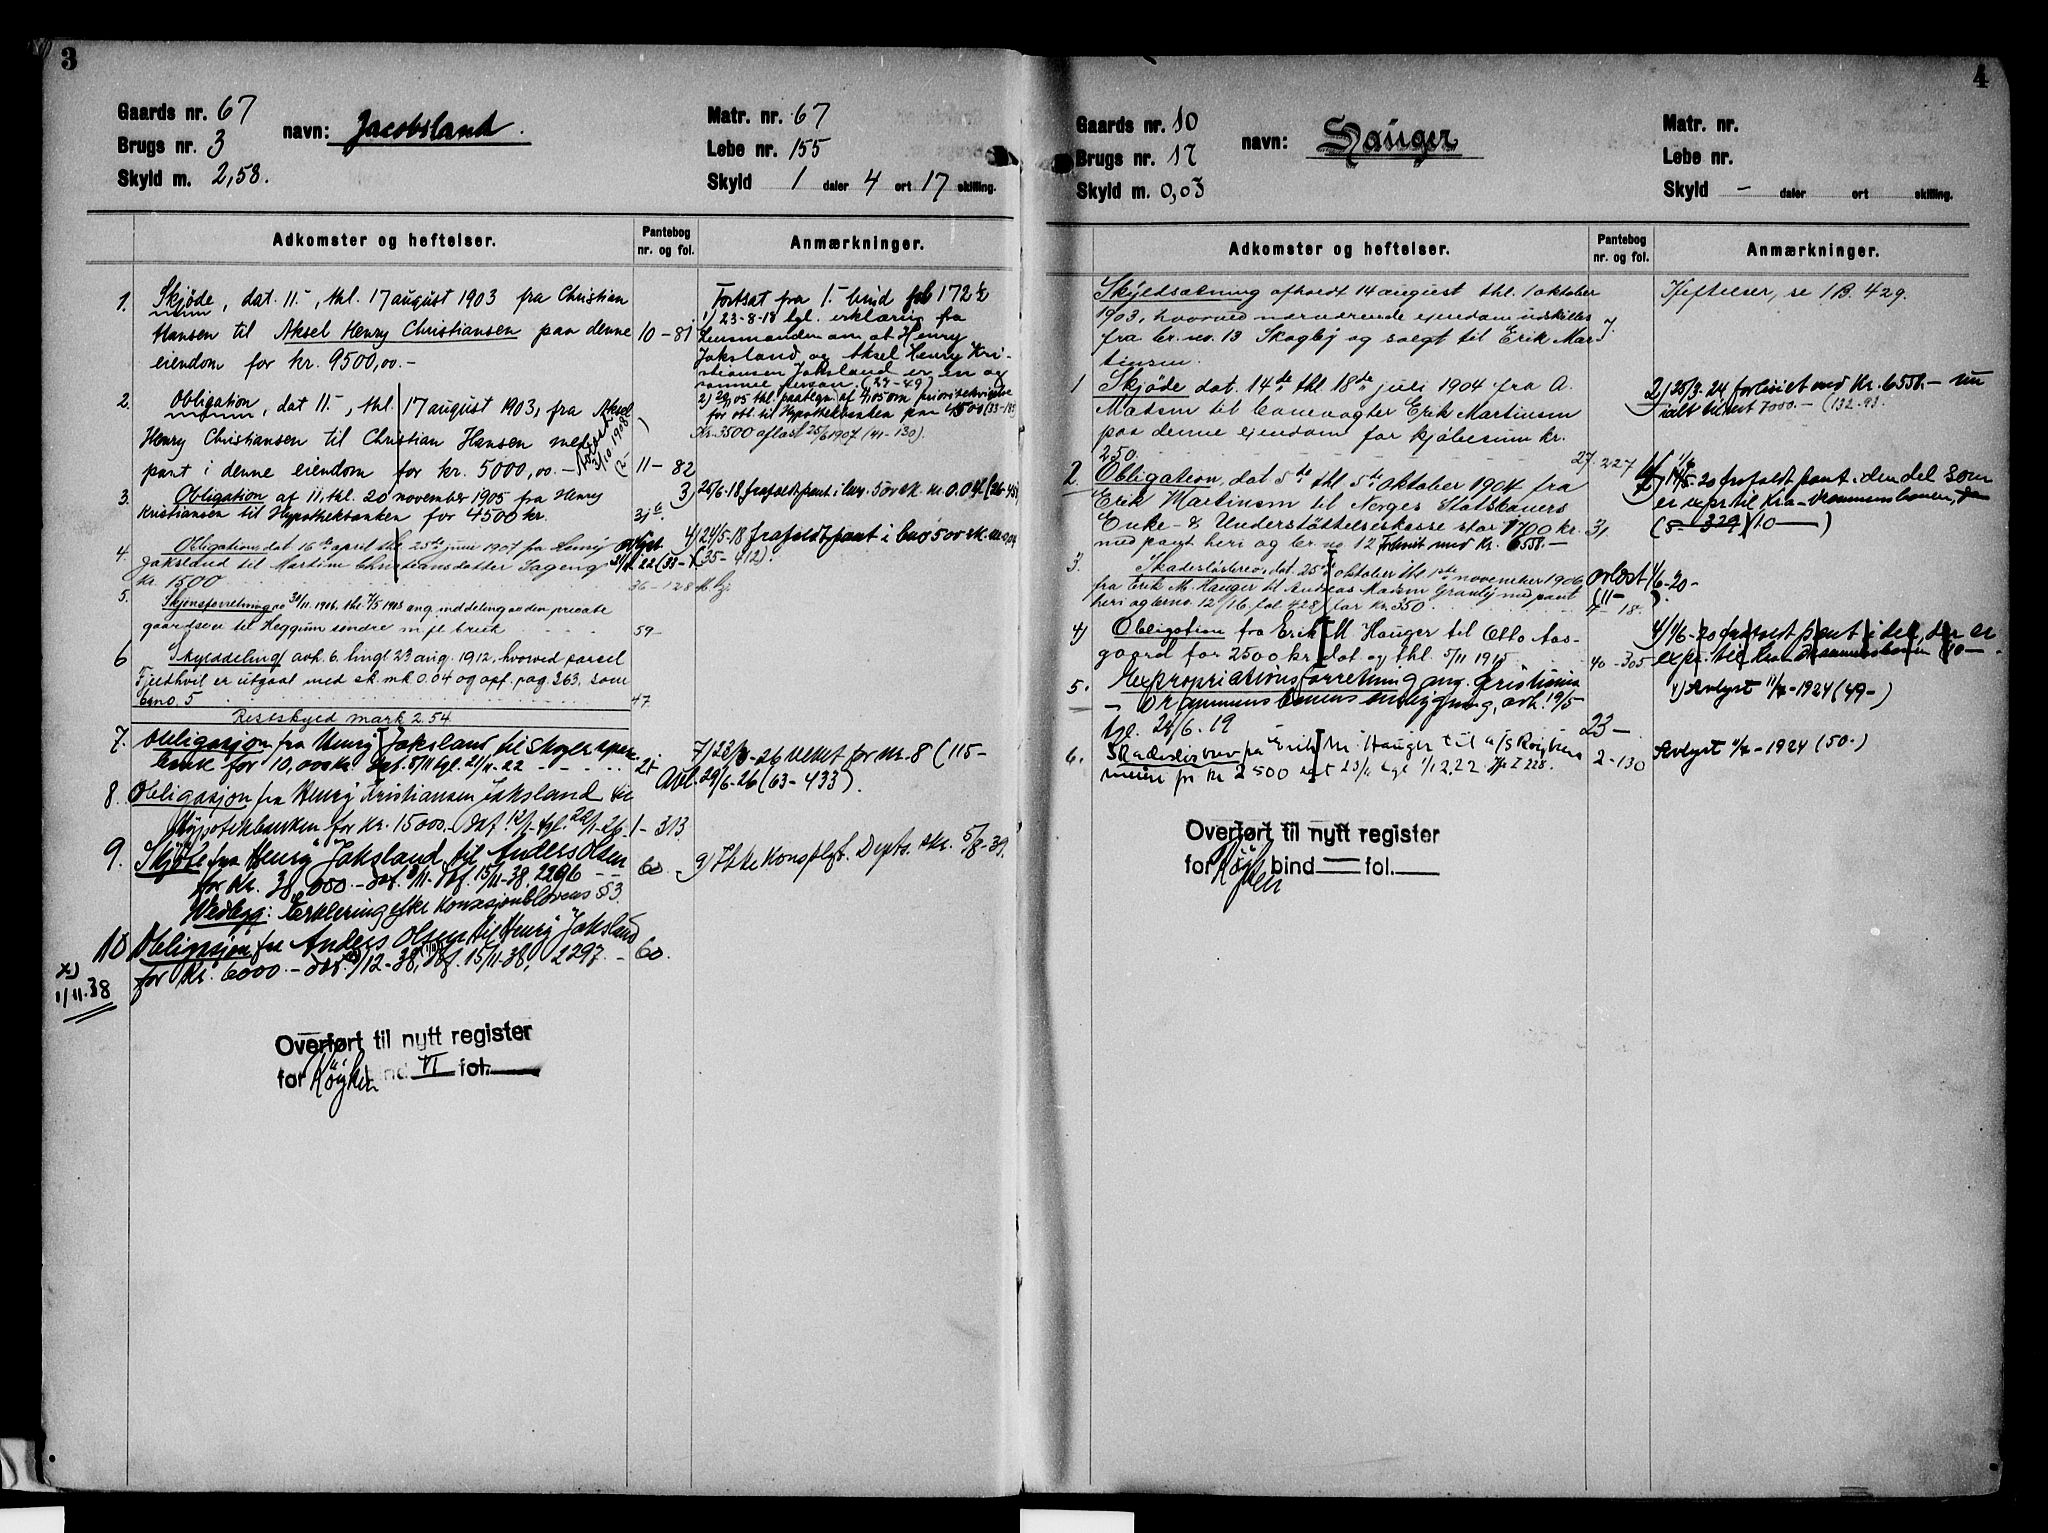 3
Gaards nr. 67
Brugs nr. 3
Skyld m. 2,58.
navn: Jacobsland.
Matr. nr. 67
Løbe nr. 155
Skyld 1 daler 4 ort 17 skilling.
Adkomster og heftelser.
Pantebog nr. og fol.
Anmærkninger.
1. Skjøde, dat. 11.-, thl. 17 august 1903 fra Christian
Hansen til Aksel Henry Christiansen paa denne 10-81
eiendom for kr. 9500,00.-
2. Obligation, dat 11.-, thl. 17 august 1903, fra Aksel
Henry Christiansen til Christian Hansen med
pant i denne eiendom for kr. 5000,00.- 11-82
3/10 1908
3. Obligation af 11, thl. 20 november 1905 fra Henry
Kristiansen til Hypothekbanken for 4500 kr.
4. Obligation, dat 16de april thl. 25de juni 1907 fra Henry
Jaksland til Martine Christiansdatter Sageng
kr. 1500 36-128
5. Skjønsforretning ang. inddeling av den private
gaardsvei til Heggum søndre m. fl. bruk 59-
6 Skylddeling avh. 6. tingl 23 aug. 1912, hvorved parsel
Fjeldhvil er utgaat med sk. mk 0.04 og opf. pag. 263, som
brno. 5 47
Restskyld mark 2.54
7. Obligasjon fra Henry Jaksland til Skogerspare
bank for 10,000 kr. dat. 5/11 tgl. 21/11.22
8. Obligasjon fra Henry Kristiansen Jaksland til
Hypotekbanken for kr. 15000.- dat. 12/1- tgl. 22/1-26. 1-313
9. Skjøte fra Henry Jaksland til Anders Olsen
for kr. 38,000.- dat. 3/11- tbf. 15/11-38, 2296 60
Vedlegg: Erklering efter Konsesjonslovens §3.
10 Obligasjon fra Anders Olsen til Henry Jaksland
for kr. 6000.- dat. x) 1/12-38, tbf. 15/11-38, 2297. 60.
x)
1/11.38
Fortsat fra 1. bind fol 172
1) 23-8-18 tgl. erklæring fra
Lensmanden om at Henry
Jaksland og Aksel Henry Kri-
stiansen Jaksland er en og
samme person. (27-49)
for obl. til Hypothekbanken paa 4500 (33-185
Kr. 3500 aflæst 25/6 1907 (41-130).
3) 25/6-18, frafaldt pant i bnr. 5 av sk. m. 0.04 (26-45)
4) 24/5-18 frafaldt pant i bno 5 av sk. m. 0,04
(35-412).
7) 23/3-26 veket for nr. 8 (115-
Avl. 29/6-26 (63-433).
9) Ikke Konsplgt. Depts. skr. 5/8-39.
Overført til nytt register
for Røyken bind VI fol.
4
Gaards nr. 10
Brugs nr. 17
Skyld m. 0,03
navn: Hauger
Matr. nr.
Løbe nr.
Skyld - daler ort skilling.
Adkomster og heftelser.
Pantebog nr. og fol.
Anmærkninger.
Skyldsætning afholdt 14 august thl. 1 oktober
1903, hvorved nærværende eiendom udskilles 7.
fra br. no. 13 Skogby og solgt til Erik Mar-
tinsen.
1 Skjøde dat. 14de thl. 18de juli 1904 fra A.
Madsen til banevogter Erik Martinsen
paa denne eiendom for kjøbesum kr.
250. 27. 227
2. Obligation, dat 5te thl. 5te oktober 1904 fra
Erik Martinsen til Norges Statsbaners
Enke- & Understøttelseskasse stor 1700 kr. 31
med pant heri og br. no. 12 forhøiet med kr. 6558.-
3. Skadesløsbrev, dat. 25de oktober thl. 1ste november 1906
fra Erik M. Hauger til Andreas Madsen Granby med pant
heri og brno. 12/16 fol. 428 for kr. 350. 7-18.
4) Obligation fra Erik M. Hauger til Otto Aas-
gaard for 2500 kr. dat og thl. 5/11 1915 40-305
5. Expropriationsforretning ang. Kristiania
- Drammensbanens ombygning, avh. 19/5-
tgl. 24/6.19 23-
6. Skadesløsbrev fra Erik M. Hauger til a/s Røyken
meieri for kr 2500 dat 23/11 tgl 1/12.22. 2-130
Heftelser, se 1B. 429.
2) 25/3.24 forhøiet med kr. 6558.- nu
ialt til rest 7000.- (132-93.
2) 14/5-20 frafaldt pant i den del som
er expr. til Kra-Drammensbanen,
(8-329)(10-)
avlæst 1/6-20-
(11-).
4) 1/6-20 frafaldt pant i del, der er
expr. til Kra-Drammensbanen (10-
4) Avlyst 11/2-1924 (49-)
Avlyst 11/2-1924 (50-)
Overført til nytt register
for Røyken bind fol.